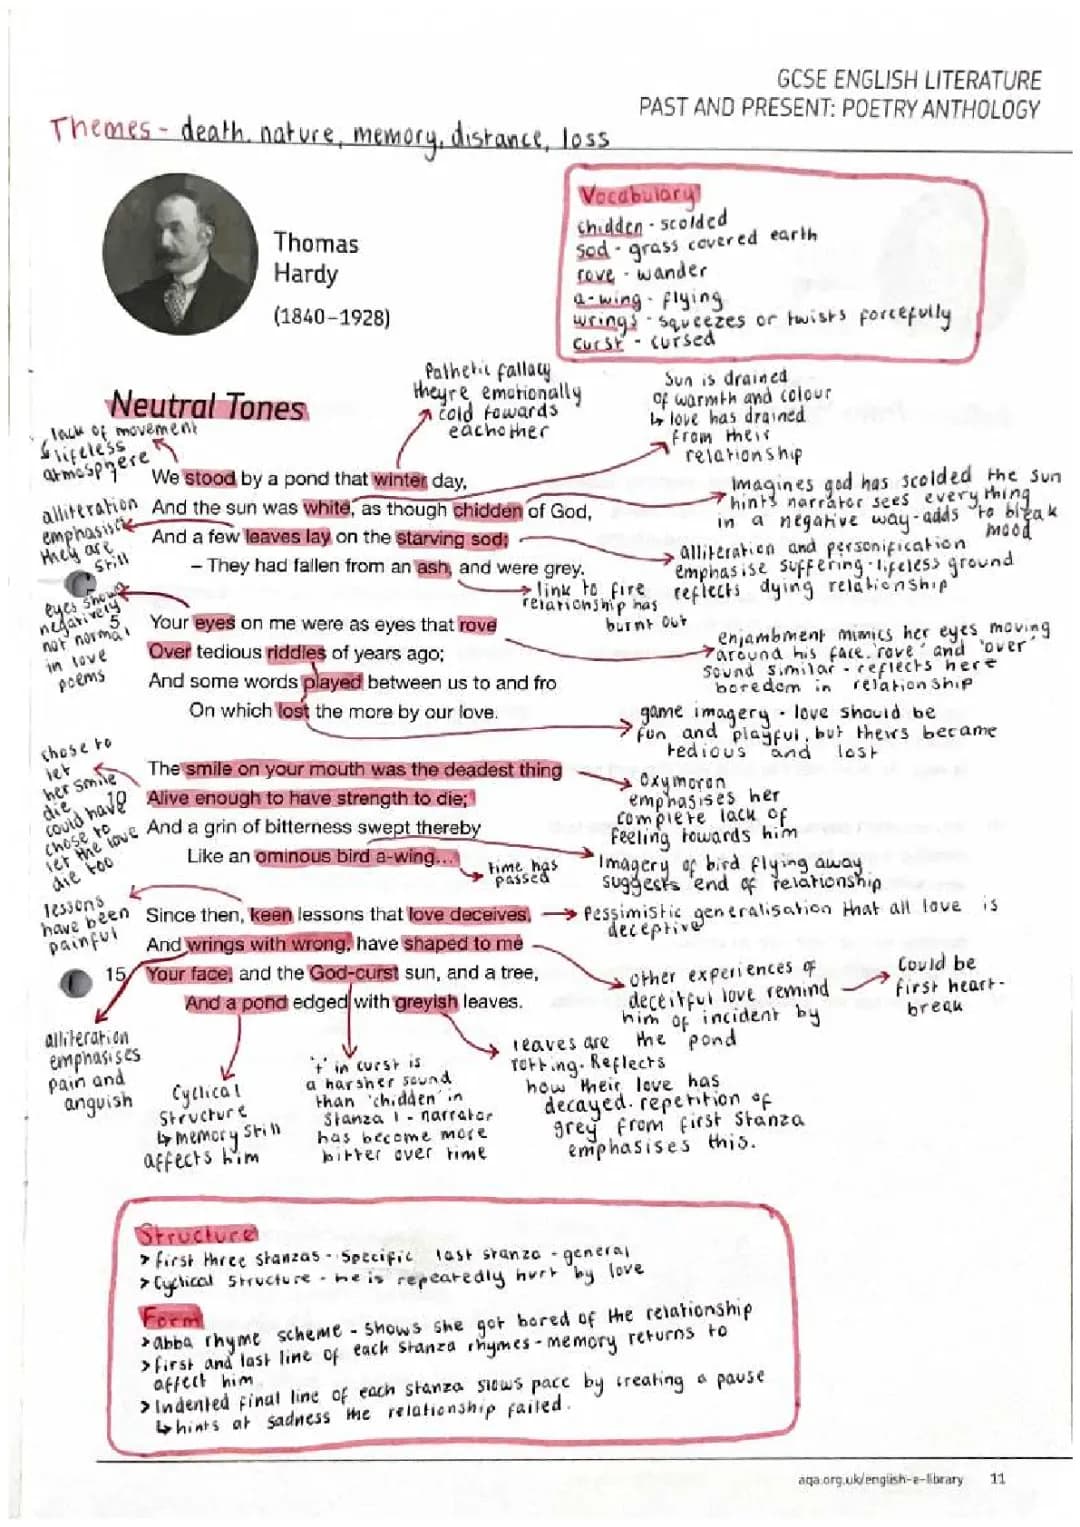 GCSE ENGLISH LITERATURE
PAST AND PRESENT: POETRY ANTHOLOGY
Themes - death, nature, memory, distance, loss
Thomas
Hardy
(1840–1928)
Vocabulary
chidden - scolded
sod - grass covered earth
rove - wander
a-wing - flying
wrings - squeezes or twists forcefully
curst - cursed
Neutral Tones
Pathetic fallacy
theyre emotionally
cold towards
eachother
Sun is drained
of warmth and colour
↳ love has drained
from their
relationship
lack of movement
↳ lifeless
atmosphere
We stood by a pond that winter day,
And the sun was white, as though chidden of God,
And a few leaves lay on the starving sod;
– They had fallen from an ash, and were grey.
Imagines god has scolded the sun
hints narrator sees everything
in a negative way - adds to bleak
mood
alliteration
emphasises
they are
still
alliteration and personification
emphasise suffering - lifeless ground
reflects dying relationship
link to fire
relationship has
burnt out
eyes shown
negatively
not normal
in love
poems
5
Your eyes on me were as eyes that rove
Over tedious riddles of years ago;
And some words played between us to and fro
On which lost the more by our love.
enjambment mimics her eyes moving
around his face. 'rove' and 'over'
sound similar - reflects here
boredom in relationship
game imagery - love should be
fun and playful, but theirs became
tedious and lost
chose to
let
her smile
die
could have
chose to
let the love
die too
The smile on your mouth was the deadest thing
10
Alive enough to have strength to die;
And a grin of bitterness swept thereby
Like an ominous bird a-wing…
Oxymoron
emphasises her
complete lack of
feeling towards him
Imagery of bird flying away
suggests end of relationship
time has
passed
lessons
have been
painful
Since then, keen lessons that love deceives,
And wrings with wrong, have shaped to me
15 Your face, and the God-curst sun, and a tree,
And a pond edged with greyish leaves.
Pessimistic generalisation that all love is
deceptive
other experiences of
deceitful love remind
him of incident by
the pond
Could be
first heart-
break
alliteration
emphasises
pain and
anguish
Cyclical
structure
↳ memory still
affects him
't' in curst is
a harsher sound
than 'chidden' in
Stanza 1 - narrator
has become more
bitter over time
leaves are
rotting. Reflects
how their love has
decayed. repetition of
grey from first stanza
emphasises this.
Structure
> first three stanzas - specific last stanza - general
> Cyclical structure - he is repeatedly hurt by love
Form
> abba rhyme scheme - shows she got bored of the relationship
> first and last line of each stanza rhymes - memory returns to
affect him
> Indented final line of each stanza slows pace by creating a pause
↳ hints at sadness the relationship failed.
aqa.org.uk/english-e-library 11